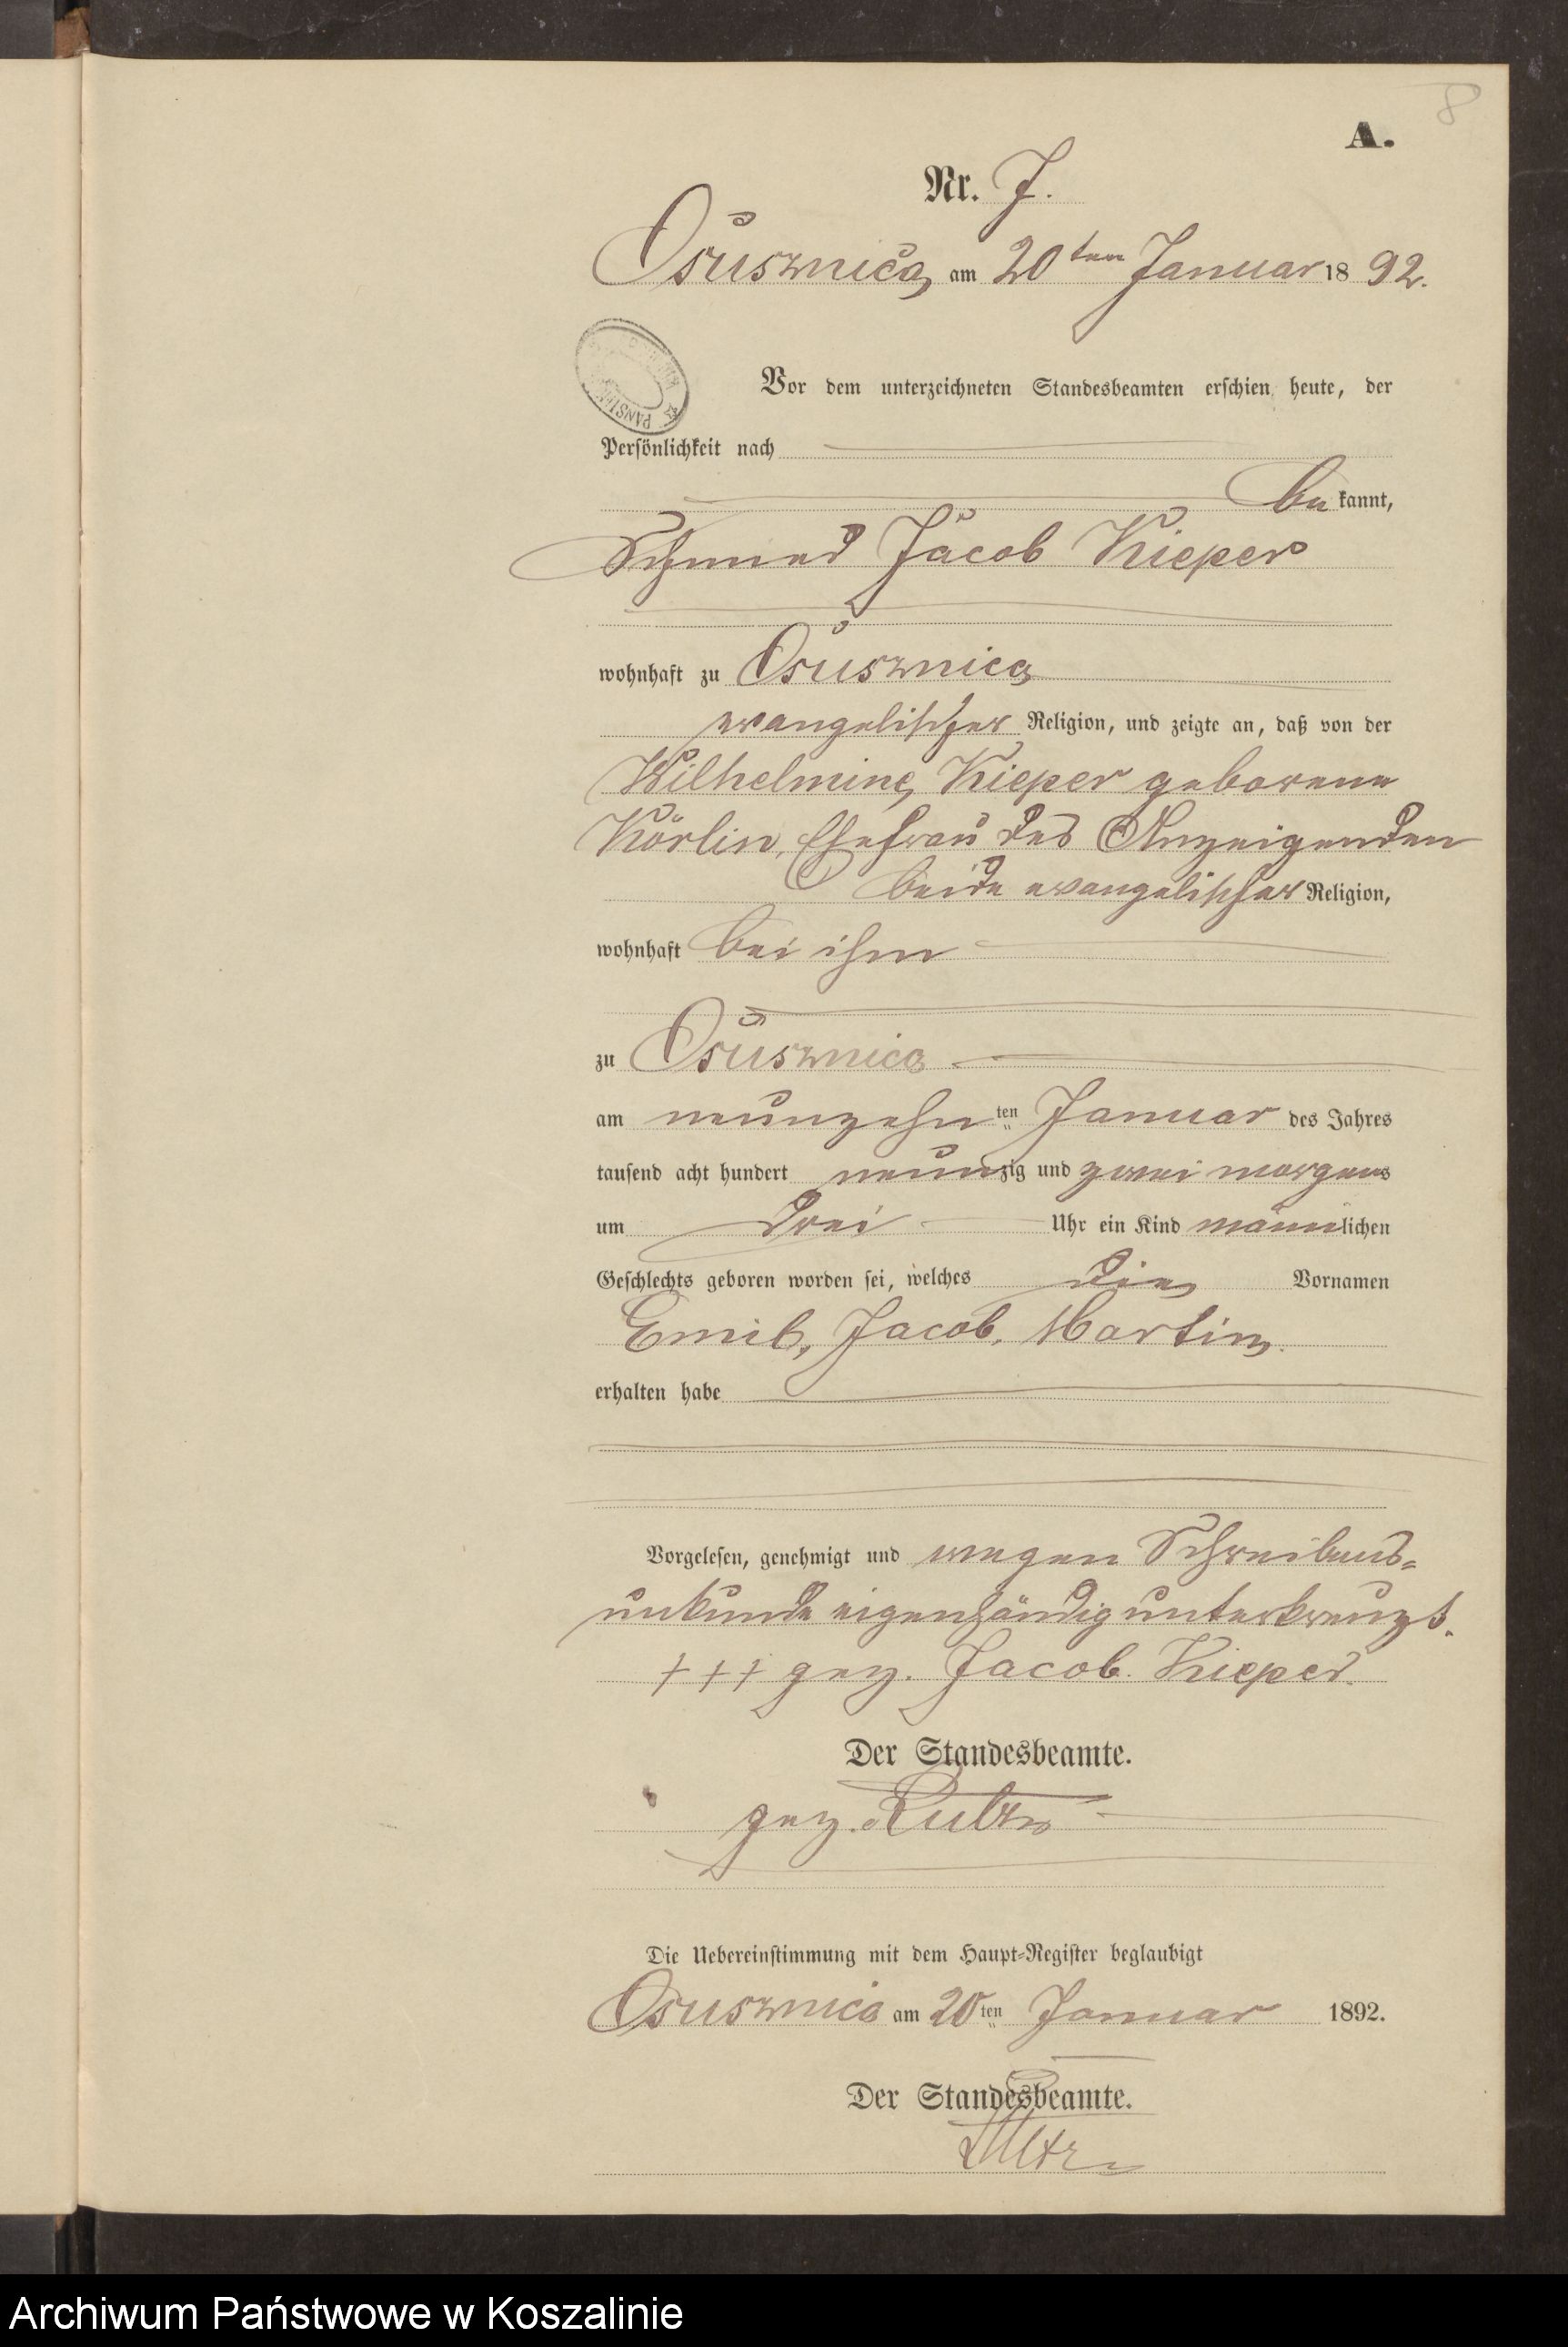 8
A.
Nr. 7.
Osusznica, am 20ten Januar 1892.
Vor dem unterzeichneten Standesbeamten erschien heute, der
Persönlichkeit nach
bekannt,
Jacob Kieper
wohnhaft zu Osusznica
evangelischer Religion, und zeigte an, daß von der
Wilhelmine Kieper geborene
Körlin, Ehefrau des Anzeigenden
beide evangelischer Religion,
wohnhaft bei ihm
zu Osusznica
am neunzehnten Januar des Jahres
tausend acht hundert neunzig und zwei morgens
um drei Uhr ein Kind männlichen
Geschlechts geboren worden sei, welches die Vornamen
Emil, Jacob, Martin
erhalten habe
Vorgelesen, genehmigt und wegen Schreibens=
unkunde eigenhändig unterkreuzt.
+++ gez. Jacob Kieper.
Der Standesbeamte.
gez.
Die Uebereinstimmung mit dem Haupt-Register beglaubigt
Osusznica am 20ten Januar 1892.
Der Standesbeamte.
Archiwum Państwowe w Koszalinie